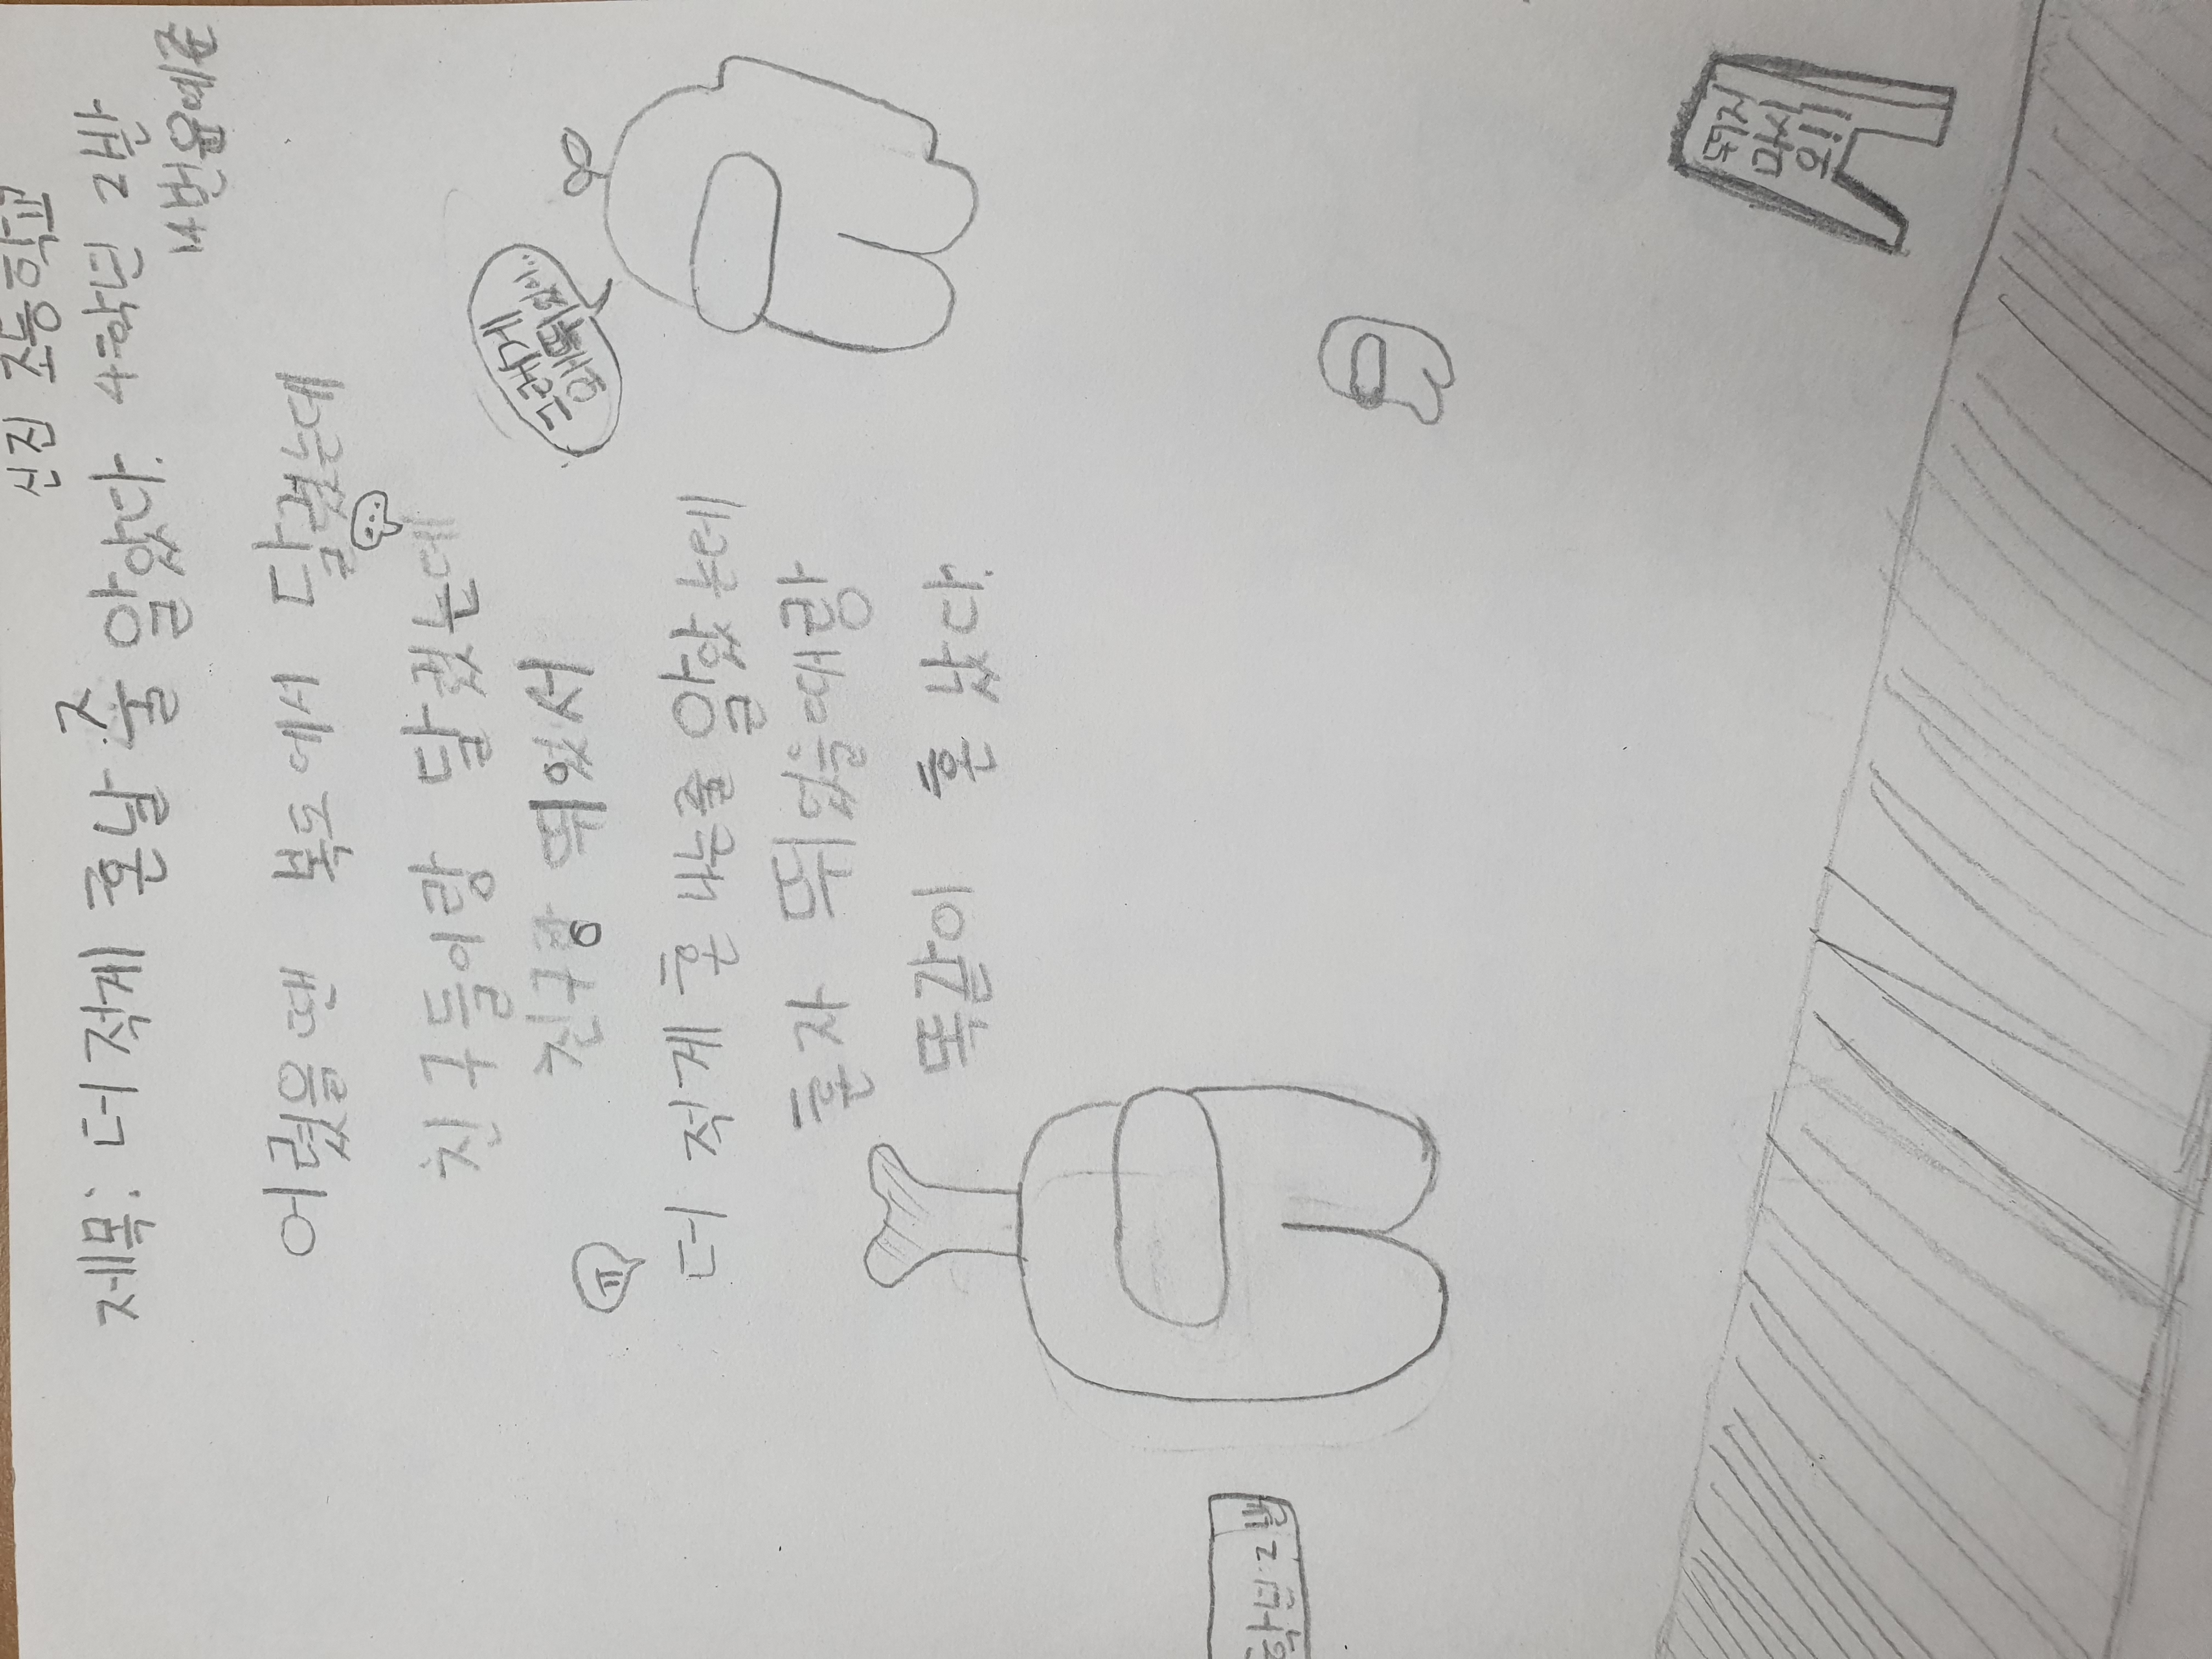 신진 초등학교
제목: 더 적게 혼날 줄 알았다. 4학년 2반
14번 윤예준
어렸을 땐 복도에서 달렸는데
친구들이랑 달렸는데
친구랑 뛰었서
더 적게 혼 나는줄 알았는데
혼자 뛰었을때랑
똑같이 혼 났다.
그러게
왜 뛰었니..
ㅠ
뛰지
마시
오!!!
학년-2반